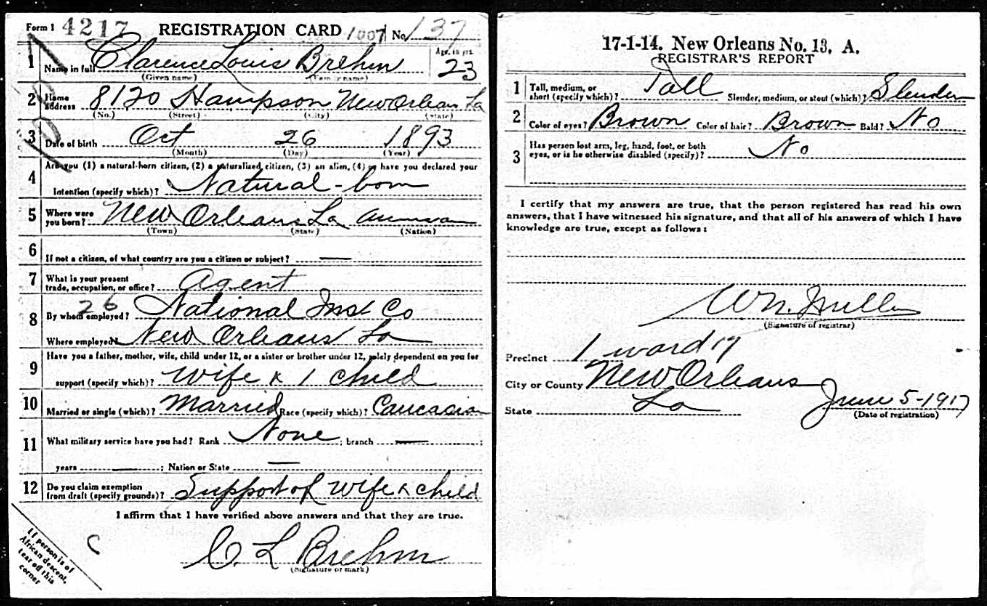 Form 1 4217 REGISTRATION CARD 1007 No. 137
1 Name in full Clarence Louis Brehm Age, in yrs. 23
(Given name) (Family name)
2 Home address 8120 Hampson New Orleans La
(No.) (Street) (City) (State)
3 Date of birth Oct 26 1893
(Month) (Day) (Year)
4 Are you (1) a natural-born citizen, (2) a naturalized citizen, (3) an alien, (4) or have you declared your
intention (specify which)? Natural-born
5 Where were you born? New Orleans La American
(Town) (State) (Nation)
6 If not a citizen, of what country are you a citizen or subject? —
7 What is your present trade, occupation, or office? Agent
26
8 By whom employed? National Inst Co
Where employed? New Orleans La
9 Have you a father, mother, wife, child under 12, or a sister or brother under 12, solely dependent on you for
support (specify which)? wife & 1 child
10 Married or single (which)? Married Race (specify which)? Caucasian
11 What military service have you had? Rank None ; branch —;
years — ; Nation or State —
12 Do you claim exemption from draft (specify grounds)? Support of wife & child
I affirm that I have verified above answers and that they are true.
C L Brehm
(Signature or mark)
If person is of
African descent,
tear off this
corner
17-1-14. New Orleans No. 13, A.
REGISTRAR'S REPORT
1 Tall, medium, or short (specify which)? Tall Slender, medium, or stout (which)? Slender
2 Color of eyes? Brown Color of hair? Brown Bald? No
3 Has person lost arm, leg, hand, foot, or both eyes, or is he otherwise disabled (specify)? No
I certify that my answers are true, that the person registered has read his own
answers, that I have witnessed his signature, and that all of his answers of which I have
knowledge are true, except as follows:
(Signature of registrar)
Precinct 1 ward 17
City or County New Orleans
State La June 5-1917
(Date of registration)